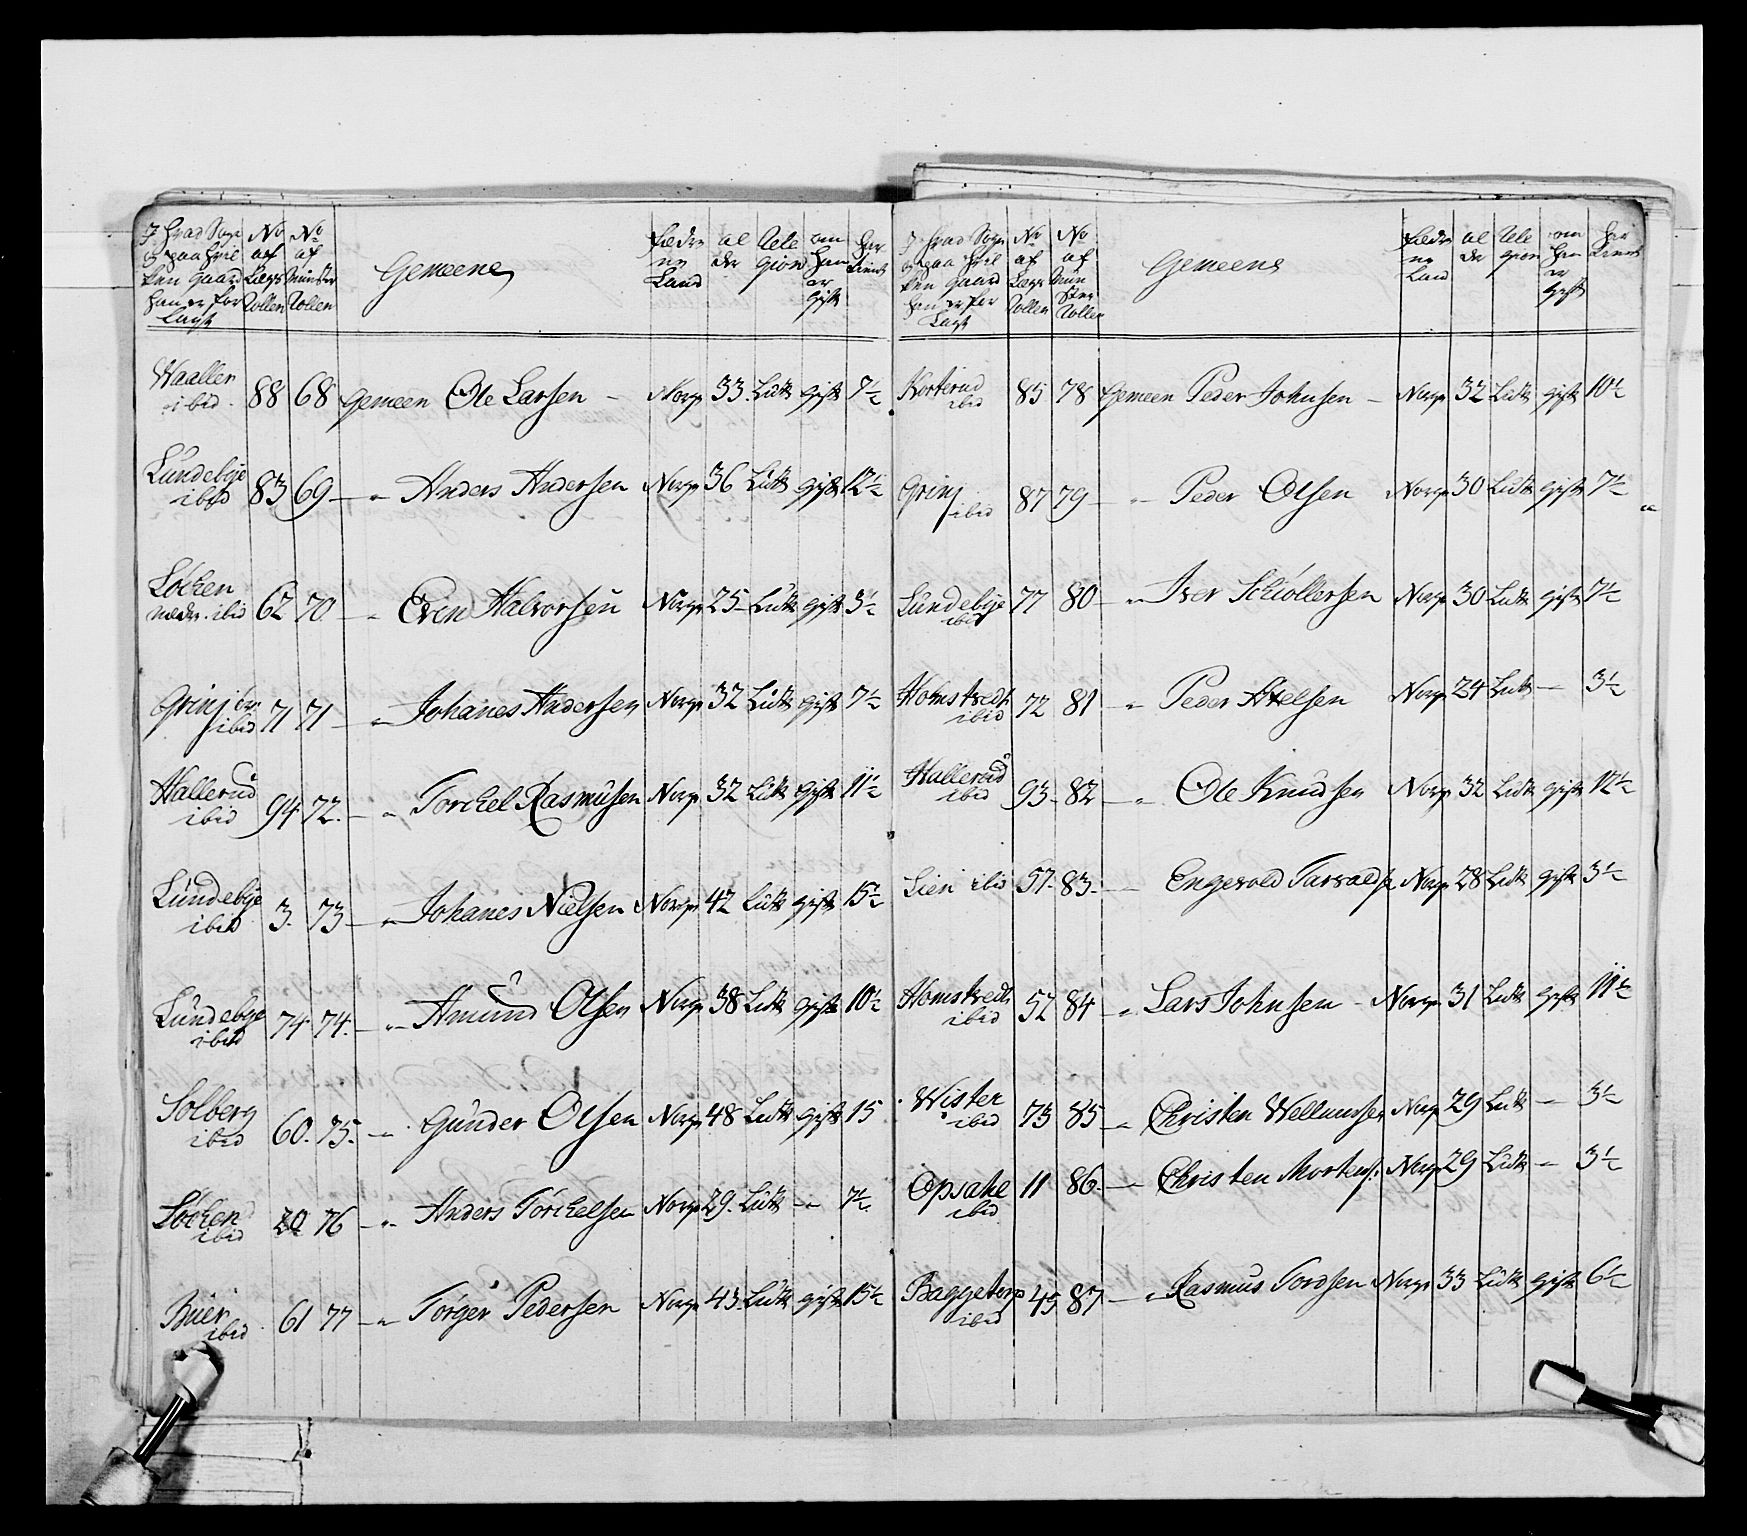 I hvad Sogn og paa hvil ken gaard han er for Lagt
No af Lægs Rollen
No af Munster Rollen
Gemeene
Fædre ne Land
al der
Reli gion
om han er gift
har tient
Waaller ibid 88 68 Gemeen Ole Larsen - Norge 33 Luth gift 7½
Lundebye ibid 83 69 - " Anders Andersen Norge 36 Luth gift 12½
Løcken neder ibid 62 70 - " Even Halvorsen Norge 25 Luth gift 3½
Grinj ibid 71 71 - " Johanes Andersen Norge 32 Luth gift 7½
Hallerud ibid 94 72 - " Torckel Rasmusen Norge 32 Luth gift 11½
Lundebye ibid 3 73 - " Johanes Nielsen Norge 42 Luth gift 15½
Lundebye ibid 74 74 - " Amund Olsen Norge 38 Luth gift 10½
Solberg ibid 60 75 - " Gunder Olsen Norge 48 Luth gift 15
Løcken ibid 20 76 - " Anders Törckelsen Norge 29 Luth - " 7½
Buer ibid 61 77 - " Törger Pedersen Norge 43 Luth gift 15½
I hvad Sogn og paa hvil ken gaard han er for Lagt
No af Lægs Rollen
No af Mun ster Rollen
Gemeene
Fædre ne Land
al der
Reli gion
om han er gift
har tient
Korterud ibid 85 78 Gemeen Peder Johnsen - Norge 32 Luth gift 10½
Grinj ibid 87 79 - " Peder Olsen Norge 30 Luth gift 7½
Lundebye ibid 77 80 - " Iver Schiøllersen Norge 30 Luth gift 7½
Homstvedt ibid 72 81 - " Peder Axelsen Norge 24 Luth - 3½
Hallerud ibid 93 82 - " Ole Knudsen Norge 32 Luth gift 12½
Lien ibid 57 83 - Engevold Tarvalds Norge 28 Luth gift 3½
Homstvedt ibid 52 84 - " Lars Johnsen - Norge 31 Luth gift 11½
Wister ibid 73 85 - " Christen Wellumsen Norge 29 Luth - 3½
Opsahe ibid 11 86 - Christen Mortens: Norge 29 Luth - 3½
Baggetorp ibid 45 87 - " Rasmus Tordsen Norge 33 Luth gift 6½